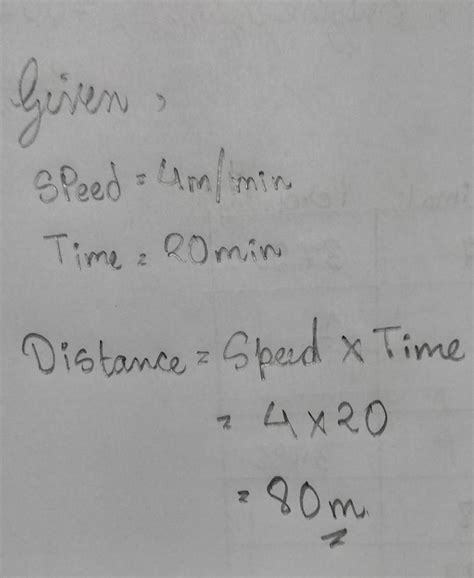 Given,
Speed = 4m/min
Time = 20min
Distance = Speed × Time
= 4 × 20
= 80m